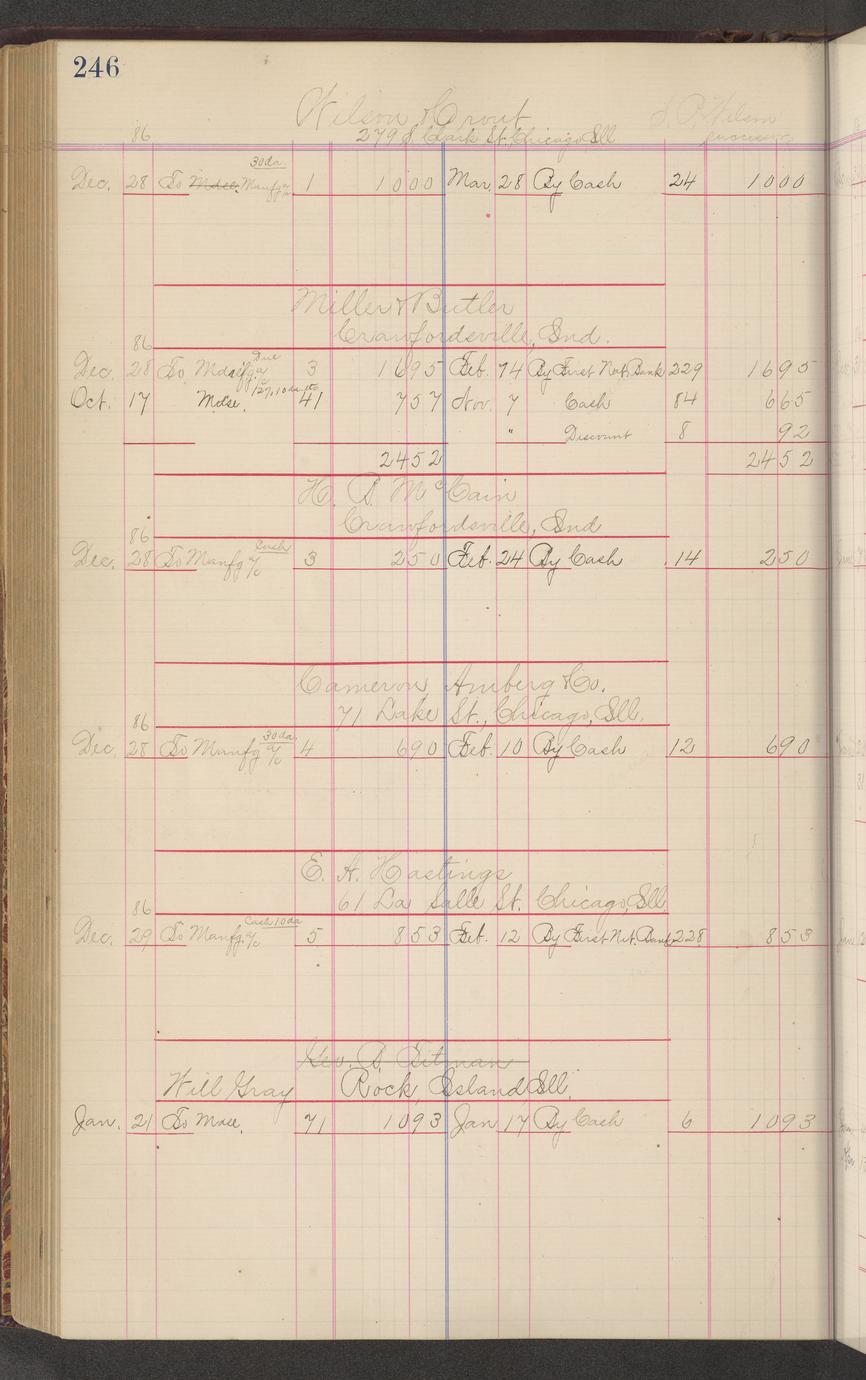 246
Wilson & Crout J. P. Wilson
86 279 S. Clark St. Chicago Ill successor
30 da.
Dec. 28 To Mdse. Manfg a/c 1 1000 Mar. 28 By Cash 24 1000
Miller & Butler
86 Crawfordsville, Ind.
Due
Dec. 28 To 3 1695 Feb. 14 By First Nat. Bank 229 1695
12% 10 da.
Oct. 17 Mdse. 41 757 Nov. 7 Cash 84 665
" Discount 8 92
2452 2452
H. S. McCain
86 Crawfordsville, Ind
Cash
Dec. 28 To Manfg a/c 3 250 Feb. 24 By Cash 14 250
Cameron, Amberg & Co.
86 71 Lake St., Chicago, Ill.
30 da.
Dec. 28 To Manfg a/c 4 690 Feb. 10 By Cash 12 690
E. A. Hastings
86 61 La Salle St. Chicago, Ill
Cash 10 da
Dec. 29 To Manfg. a/c 5 853 Feb. 12 By First Nat. Bank 228 853
Geo. Titman
Will Gray Rock Island Ill.
Jan. 21 To Mdse. 71 1093 Jan 17 By Cash 6 1093